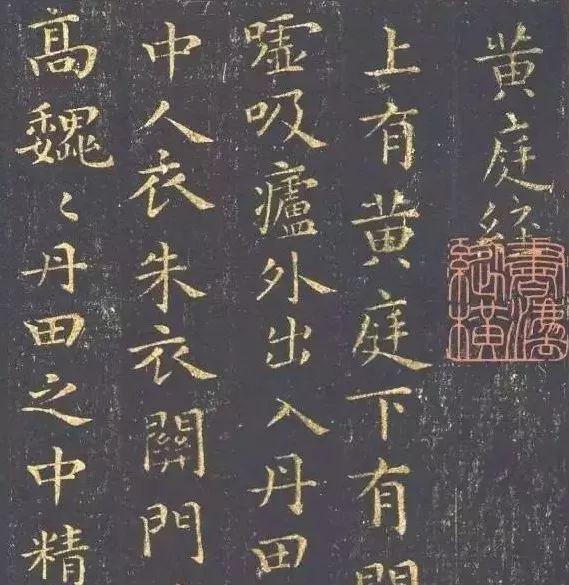 黄庭經
上有黄庭下有
噓吸廬外出入丹田
中人衣朱衣關門
高巍〻丹田之中精